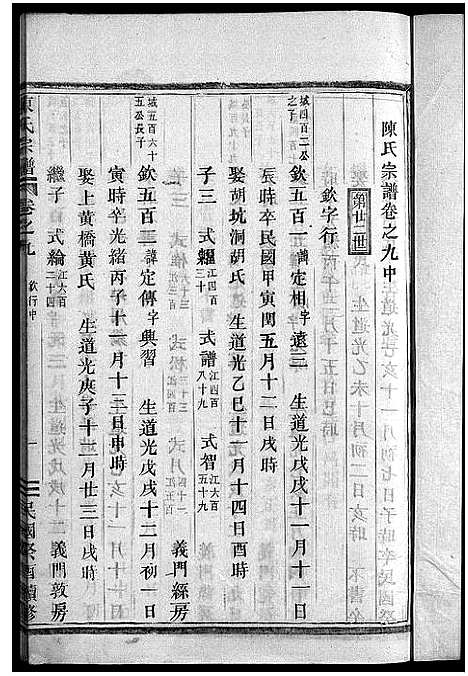 陳氏宗譜卷之九中
第廿二世
欽字行
城四百二公之子
欽五百一 諱定相字遠三 生道光戊戌十一月十一日
辰時卒民國甲寅閏五月十二日戌時
娶胡坑洞胡氏 生道光乙巳十一月十四日酉時
子三 式繩江四百三十 式譜江四百八十九 式智江六百五十九 義門經房
城五百六十五公長子
欽五百二 諱定傳字興習 生道光戊戌十二月初一日
寅時卒光緒丙子十二月十三日申時
娶上黃橋黃氏 生道光庚子十二月廿三日戌時
繼子 式綸江六百二十四 義門敦房
陳氏宗譜 卷之九 欽行中 一 民國癸酉續修